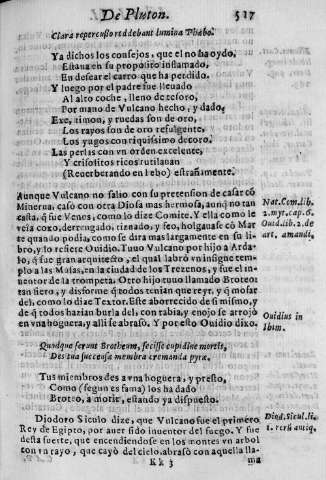 De Pluton. 517
Clara repercusso reddebant lumina Phœbo.
Ya dichos los consejos, que el no ha oydo.
Estaua en su proposito inflamado,
En desear el carro que ha perdido.
Y luego por el padre fue lleuado
Al alto coche, lleno de tesoro,
Por mano de Vulcano hecho, y dado,
Exe, timon, y ruedas son de oro,
Los rayos son de oro refulgente,
Los yugos con riquissimo de oro.
Las perlas con vn orden excelente,
Y crisolitos ricos rutilauan
(Reuerberando en Febo) estrañamente.
Aunque Vulcano no salio con su pretension de casar cõ
Minerua, casò con otra Diosa mas hermosa, aunq̃ no tan
casta, q̃ fue Venes, como lo dize Comite. Y ella como le
veia coxo, derrengado, tiznado, y feo, holgause cõ Mar
te quando podia, como se dira mas largamente en su li-
bro, y lo refiere Ouidio. Tuuo Vulcano por hijo a Arda-
lo, q̃ fue gran arquitecto, el qual labrò vn insigne tem-
plo a las Musas, en la ciudad de los Trezenos, y fue el in-
uentor de la trompeta. Otro hijo tuuo llamado Broteo
tan fiero, y disforme q̃ todos tenian que reyr, y q̃ mofar
del, como lo dize Textor. Este aborrecido de si mismo, y
de q̃ todos hazian burla del, con rabia, y enojo se arrojò
en vna hoguera, y alli se abrasò. Y po esto Ouidio dixo.
Nat. Com. lib.
2. myt. cap. 6.
Ouid. lib. 2. de
art. amandi,
Ouidius in
Ibim.
Quodque ferunt Brotheum, fecisse cupidine mortis,
Des tua succensæ membra cremanda pyræ.
Tus miembros des a vna hoguera, y presto,
Como (segun es fama) los ha dado
Broteo, a morir, estando ya dispuesto.
Diodoro Siculo dize, que Vulcano fue el primero
Rey de Egipto, por auer sido inuentor del fuego. Y fue
desta suerte, que encendiendose en los montes vn arbol
con vn rayo, que cayò del cielo, abrasò con aquella lla-
Diod. Sicul. li.
1. rerũ antiq.
Kk 3 ma